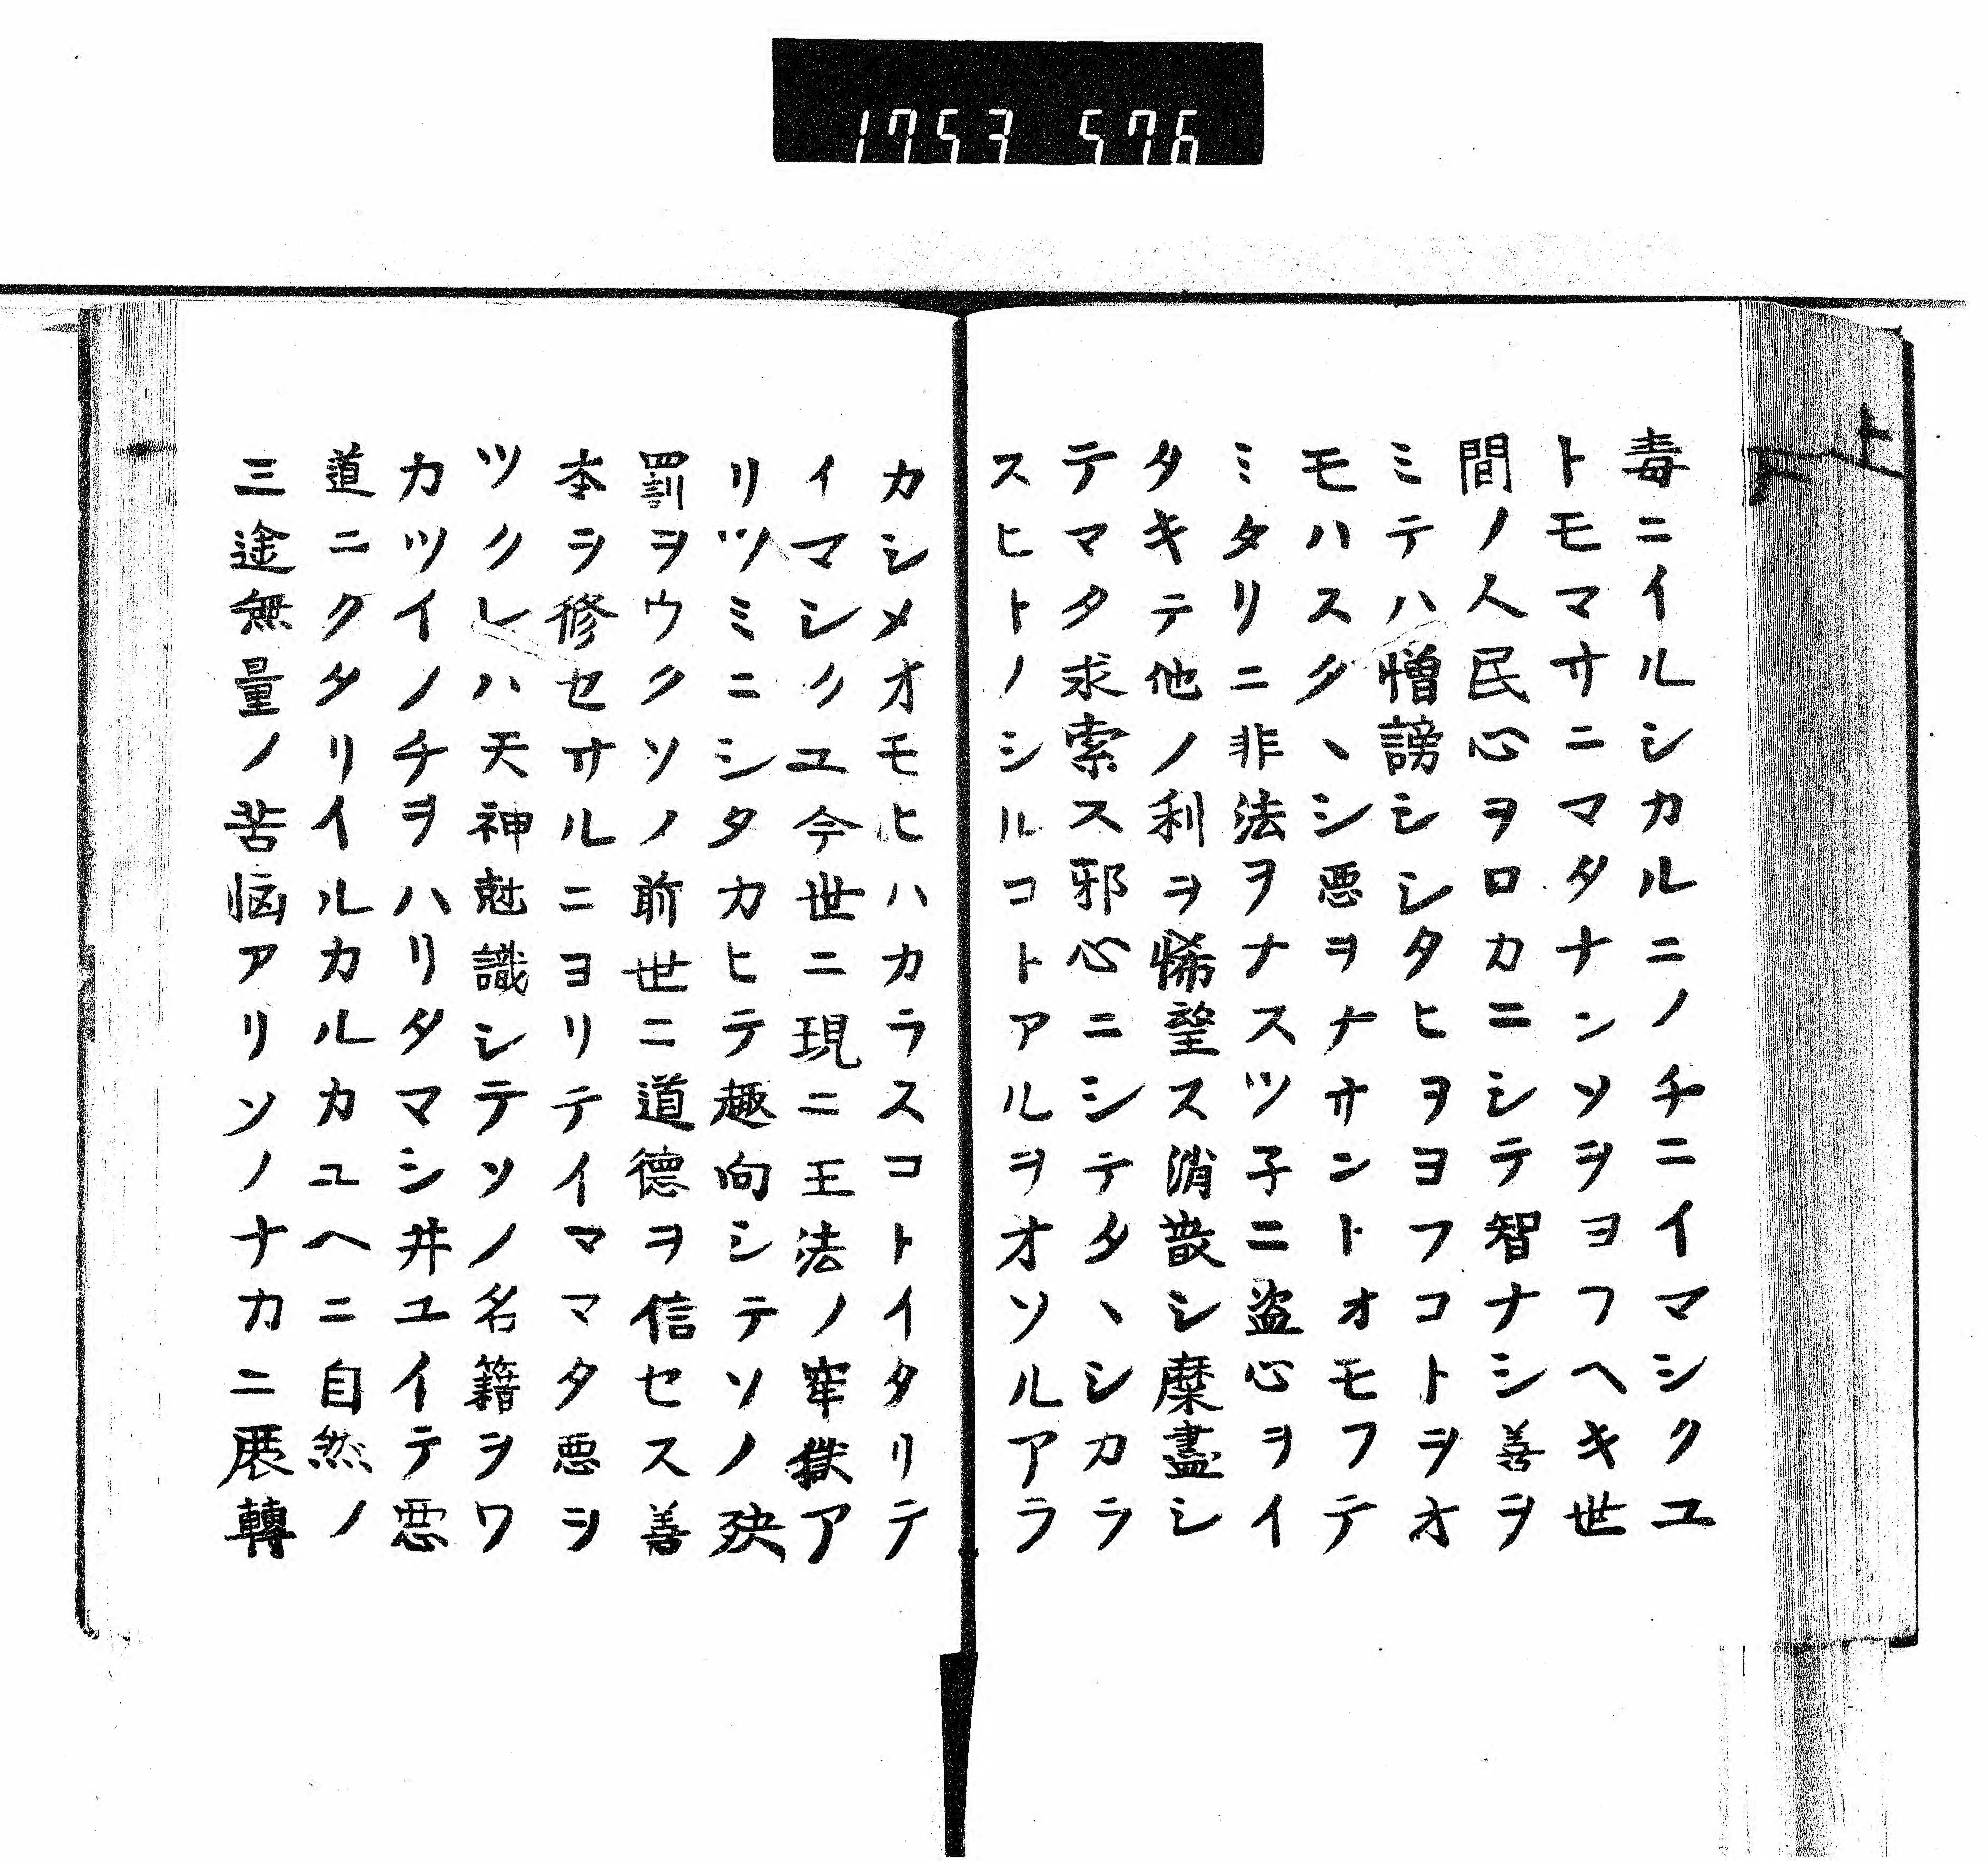 1753 576
上
下
毒ニイルシカルニノチニイマシクユ
トモマサニマタナンソヲヨフヘキ世
間ノ人民心ヲロカニシテ智ナシ善ヲ
ミテハ憎謗シシタヒヲヨフコトヲオ
モハスタヽシ悪ヲナサントオモフテ
ミタリニ非法ヲナスツ子ニ盗心ヲイ
タキテ他ノ利ヲ悕望ス消散シ糜盡シ
テマタ求索ス邪心ニシテタヽシカラ
スヒトノシルコトアルヲオソルアラ
カシメオモヒハカラスコトイタリテ
イマシクユ今世ニ現ニ王法ノ牢獄ア
リツミニシタカヒテ趣向シテソノ殃
罰ヲウクソノ前世ニ道德ヲ信セス善
本ヲ修セサルニヨリテイママタ悪シ
ツクレハ天神尅識シテソノ名籍ヲワ
カツイノチヲハリタマシ井ユイテ悪
道ニクタリイルカルカユヘニ自然ノ
三途無量ノ苦悩アリソノナカニ展轉